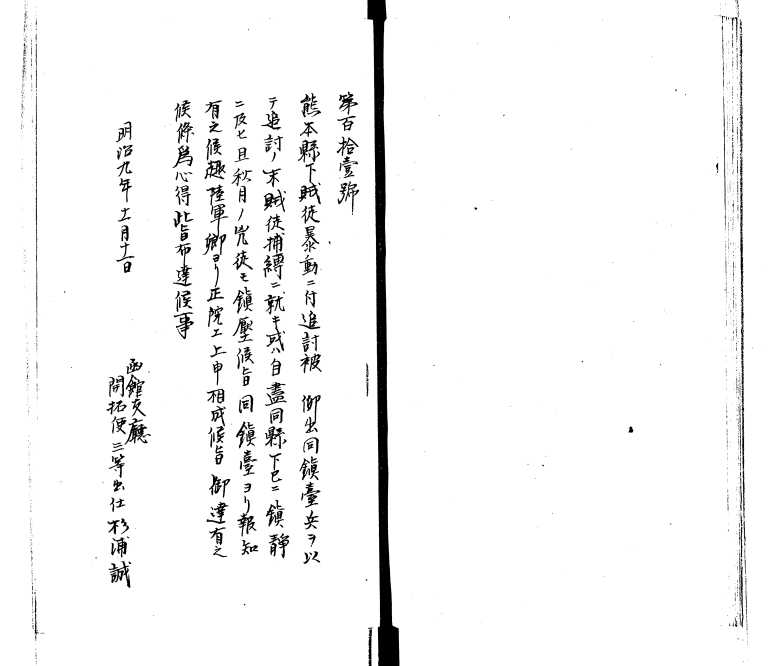 第百拾壹號
熊本縣下賊徒暴動ニ付追討被 仰出同鎭臺兵ヲ以
テ追討ノ末賊徒捕縛ニ就キ或ハ自盡同縣下已ニ鎭静
ニ及ヒ且秋月ノ兇徒モ鎭壓候旨同鎭臺ヨリ報知
有之候趣陸軍卿ヨリ正院エ上申相成候旨御達有之
候條爲心得此旨布達候事
明治九年十一月十一日
函館支廳
開拓使三等出仕杉浦誠